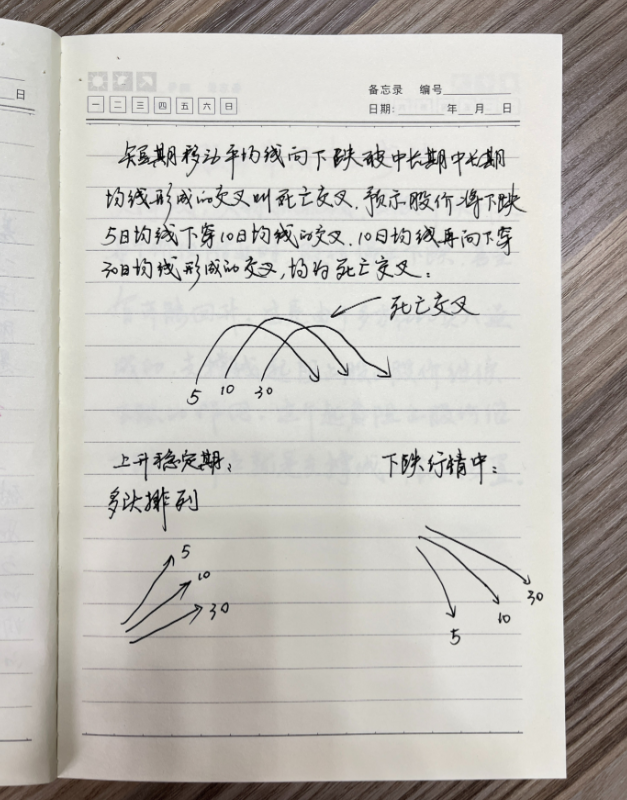 日
备忘录 编号
一 二 三 四 五 六 日
日期: 年 月 日
短期移动平均线向下跌破中长期中长期
均线形成的交叉叫死亡交叉.预示股价将下跌
5日均线下穿10日均线的交叉.10日均线再向下穿
30日均线形成的交叉,均为死亡交叉:
死亡交叉
5 10 30
上升稳定期: 下跌行情中:
多头排列
5
10
30
30
10
5